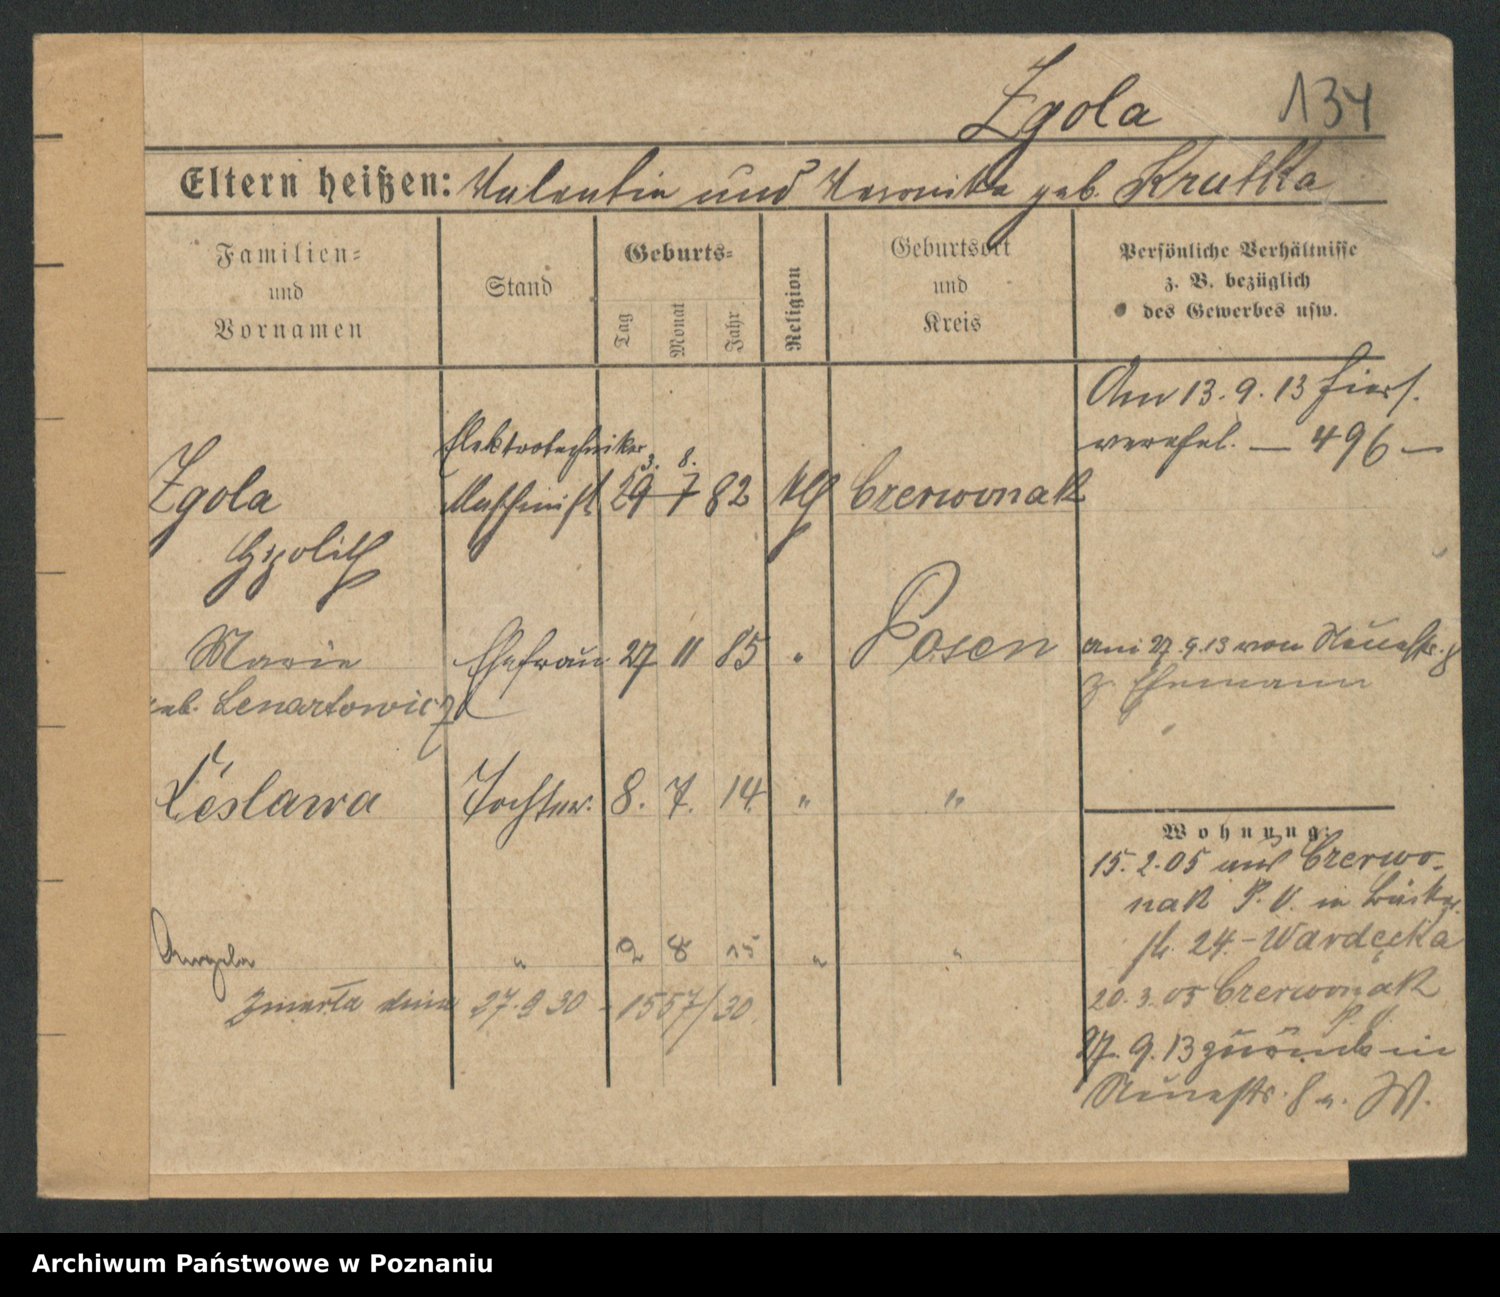 Zgola 134
Eltern heißen: Valentin und Veronika geb. Krutka
Familien=
und
Vornamen
Stand
Geburts=
Tag
Monat
Jahr
Religion
Geburtsort
und
Kreis
Persönliche Verhältnisse
z. B. bezüglich
des Gewerbes usw.
Am 13. 9. 13 hiers.
verehel. — 496 —
Elektrotechniker 3. 8.
Zgola Maschinist 29 7 82 Kth Czerwonak
Hypolith
Marie Ehefrau 27 11 85 " Posen am 27. 9. 13 von Neuestr. 8
geb. Lenartowicz z. Ehemann
Česlawa Tochter. 8. 7. 14. " "
Wohnung:
15. 2. 05 aus Czerwo-
nak P. O. in Bäcker
str. 24. - Wardęcka
Angela " 2 8 15 " "
zmarła dnia 27.9 30 - 1557/30
20. 3. 05 Czerwonak
P. O.
27. 9. 13 zurück in
Neuestr. 8 a. W.
Archiwum Państwowe w Poznaniu